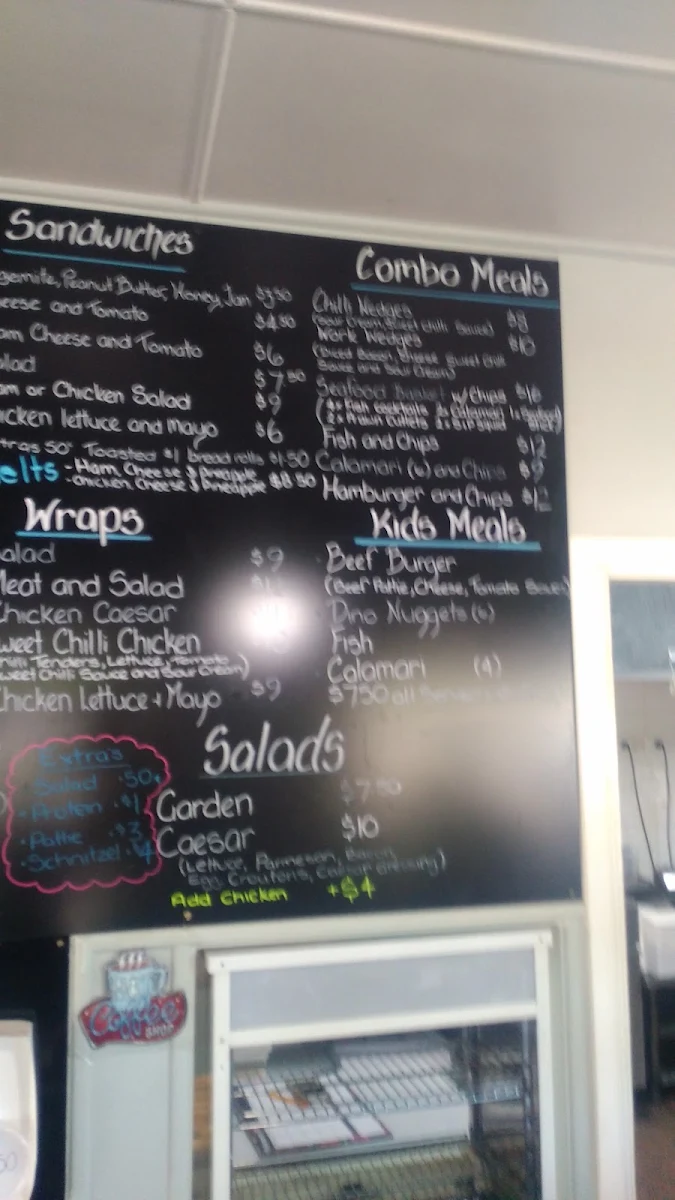 Sandwiches
gemite, Peanut Butter, Honey, Jam $3.50
eese and Tomato $4.50
am Cheese and Tomato $6
alad $7.50
am or Chicken Salad $9
icken lettuce and mayo $6
tras 50c Toasted $1 bread rolls $1.50
elts - Ham, Cheese & Pineapple
- Chicken, Cheese & Pineapple $8.50
Wraps
alad $9
Meat and Salad
Chicken Caesar
weet Chilli Chicken
Tenders, Lettuce, Tomato
weet Chilli Sauce and Sour Cream)
Chicken Lettuce + Mayo $9
Combo Meals
Chilli Wedges $8
(Sour Cream, Sweet Chilli Sauce)
Work Wedges $10
(Diced Bacon, Cheese, Sweet Chilli
Sauce and Sour Cream)
Seafood Basket w/ Chips $16
Fish and Chips $12
Calamari (6) and Chips $9
Hamburger and Chips $12
Kids Meals
Beef Burger
(Beef Pattie, Cheese, Tomato Sauce)
Dino Nuggets (6)
Fish
Calamari (4)
$7.50 all
Salads
Garden $7.50
Caesar $10
(Lettuce, Parmesan, Bacon,
Egg, Croutons, Caesar Dressing)
Add Chicken +$4
Extra's
Salad 50c
Protein $1
Pattie $3
Schnitzel $4
Coffee